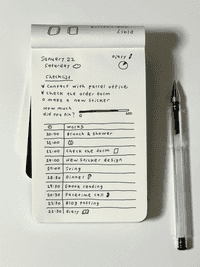 January 22
Saturday
diary
Checklist
contact with parcel office
check the order form
make a new sticker
How much
did you do?
100
works
10:30 Brunch & shower
12:00
13:00 check the form
14:00 New sticker design
17:00
18:30 Dinner
19:30
20:30 Facetime call
22:30 Blog posting
23:30 diary